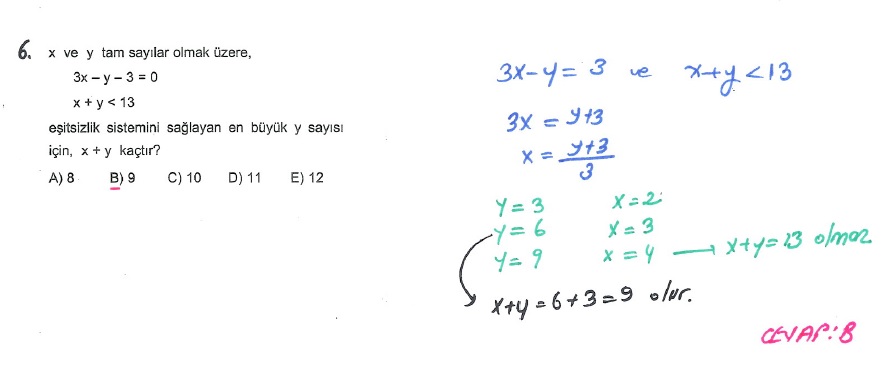 6. x ve y tam sayılar olmak üzere,
3x – y – 3 = 0
x + y < 13
eşitsizlik sistemini sağlayan en büyük y sayısı
için, x + y kaçtır?
A) 8 B) 9 C) 10 D) 11 E) 12
3x-y= 3 ve x+y<13
3x = y+3
x = y+3/3
y = 3 x=2
y = 6 x = 3
y= 9 x = 4 → x+y=13 olmaz
x+y=6+3=9 olur.
CEVAP:B